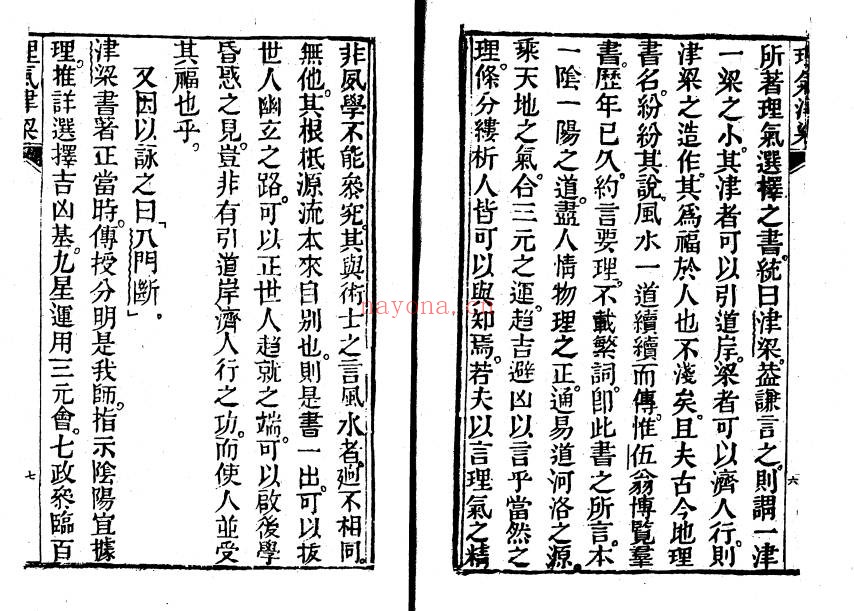 理氣津梁
所著理氣選擇之書。統曰津梁。葢謙言之。則謂一津
一梁之小。其津者可以引道岸。梁者可以濟人行。則
津梁之造作。其為福於人也不淺矣。且夫古今地理
書名。紛紛其說。風水一道。續續而傳。惟伍翁博覽羣
書。歷年已久。約言要理。不載繁詞。卽此書之所言。本
一陰一陽之道。盡人情物理之正。通易道河洛之源。
乘天地之氣。合三元之運。趋吉避凶以言乎當然之
理。條分縷析。人皆可以與知焉。若夫以言理氣之精
六
非夙學不能叅究。其與術士之言風水者。廻不相同。
無他。其根柢源流。本來自別也。則是書一出。可以拔
世人幽立之路。可以正世人趋就之端。可以啟後學
昏惑之見。豈非有引道岸濟人行之功。而使人並受
其福也乎。
又因以詠之曰「八門斷。」
津梁書著正當時。傳授分明是我師。指示陰陽宜據
理。推詳選擇吉凶基。九星運用三元會。七政叅臨百
理氣津梁
七
nayona.cn